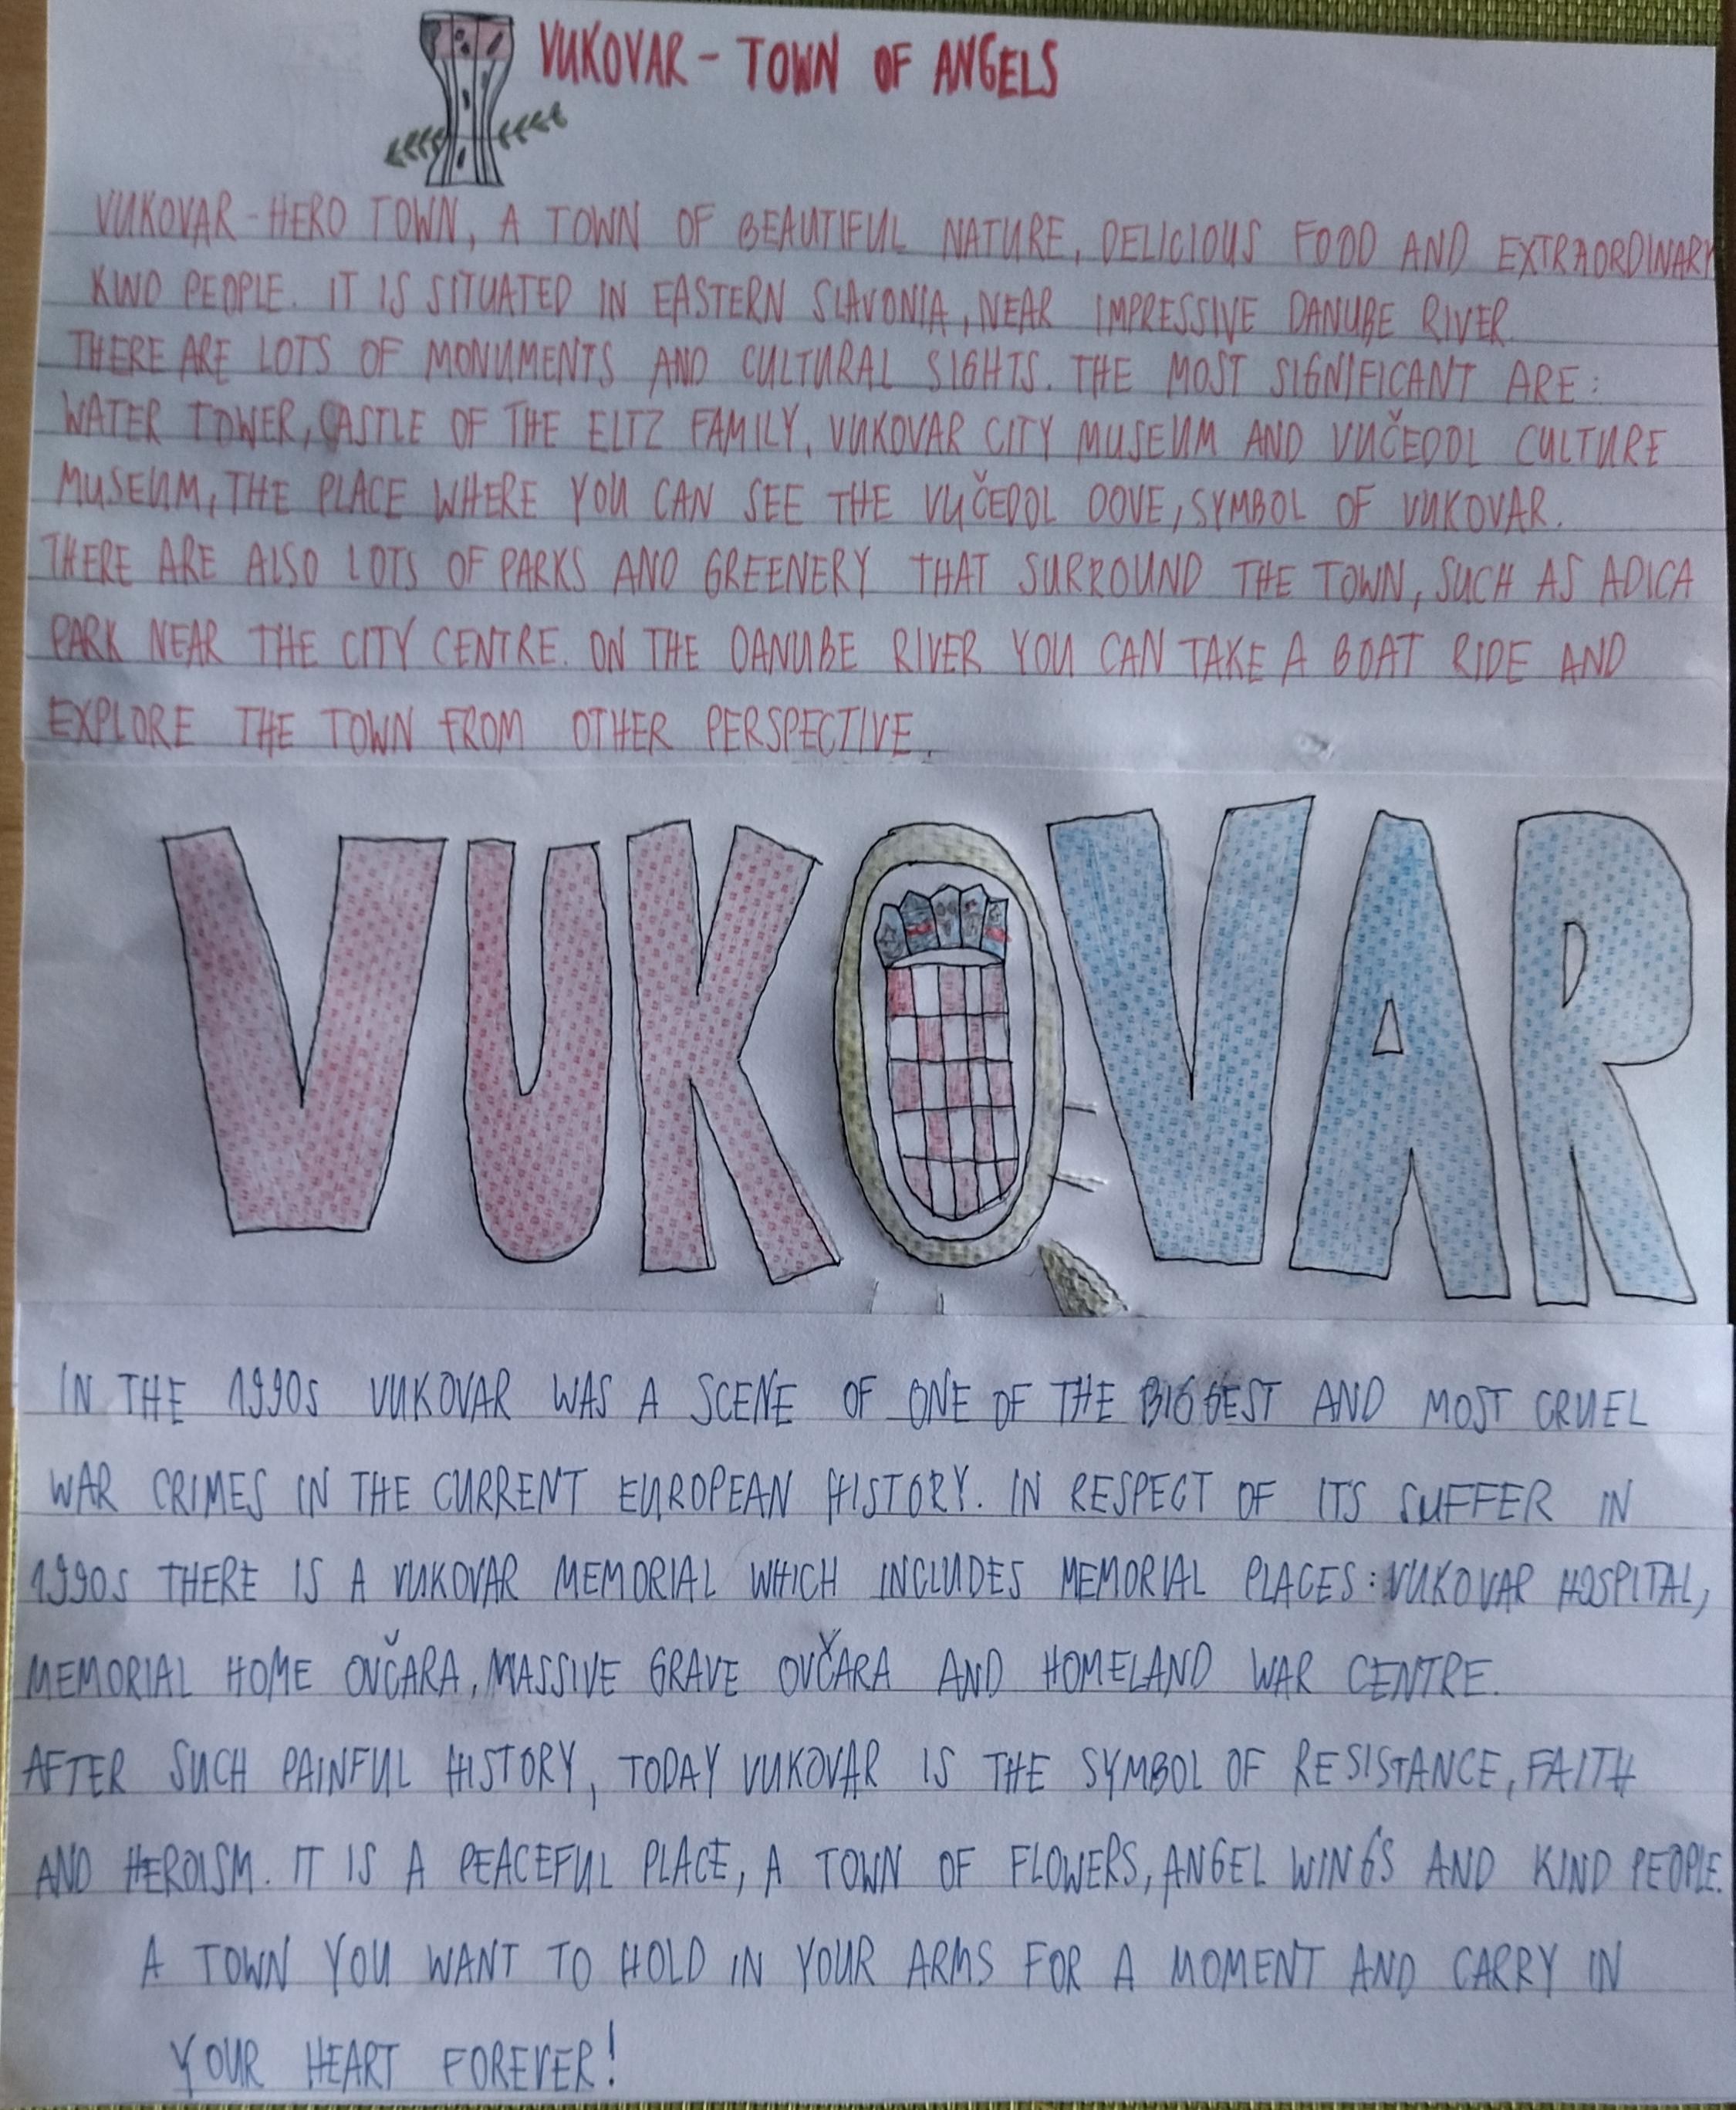 VUKOVAR - TOWN OF ANGELS
VUKOVAR - HERO TOWN, A TOWN OF BEAUTIFUL NATURE, DELICIOUS FOOD AND EXTRAORDINARY
KIND PEOPLE. IT IS SITUATED IN EASTERN SLAVONIA, NEAR IMPRESSIVE DANUBE RIVER.
THERE ARE LOTS OF MONUMENTS AND CULTURAL SIGHTS. THE MOST SIGNIFICANT ARE:
WATER TOWER, CASTLE OF THE ELTZ FAMILY, VUKOVAR CITY MUSEUM AND VUČEDOL CULTURE
MUSEUM, THE PLACE WHERE YOU CAN SEE THE VUČEDOL DOVE, SYMBOL OF VUKOVAR.
THERE ARE ALSO LOTS OF PARKS AND GREENERY THAT SURROUND THE TOWN, SUCH AS ADICA
PARK NEAR THE CITY CENTRE. ON THE DANUBE RIVER YOU CAN TAKE A BOAT RIDE AND
EXPLORE THE TOWN FROM OTHER PERSPECTIVE.
VUKOVAR
IN THE 1990s VUKOVAR WAS A SCENE OF ONE OF THE BIGGEST AND MOST CRUEL
WAR CRIMES IN THE CURRENT EUROPEAN HISTORY. IN RESPECT OF ITS SUFFER IN
1990s THERE IS A VUKOVAR MEMORIAL WHICH INCLUDES MEMORIAL PLACES: VUKOVAR HOSPITAL,
MEMORIAL HOME OVČARA, MASSIVE GRAVE OVČARA AND HOMELAND WAR CENTRE.
AFTER SUCH PAINFUL HISTORY, TODAY VUKOVAR IS THE SYMBOL OF RESISTANCE, FAITH
AND HEROISM. IT IS A PEACEFUL PLACE, A TOWN OF FLOWERS, ANGEL WINGS AND KIND PEOPLE.
A TOWN YOU WANT TO HOLD IN YOUR ARMS FOR A MOMENT AND CARRY IN
YOUR HEART FOREVER!